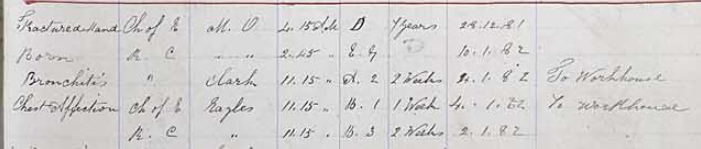 Fractured Hand Ch of E M. O 4.15 P.M D 7 Years 28.12.81
Born R. C " " 2.45 " E. G 10.1.82
Bronchitis " Clark 11.15 " A. 2 2 Weeks 4.1.82 To Workhouse
Chest Affection Ch of E Eagles 11.15 " B. 1 1 Week 4.1.82 To Workhouse
R. C " 11.15 " B. 3 2 Weeks 2.1.82